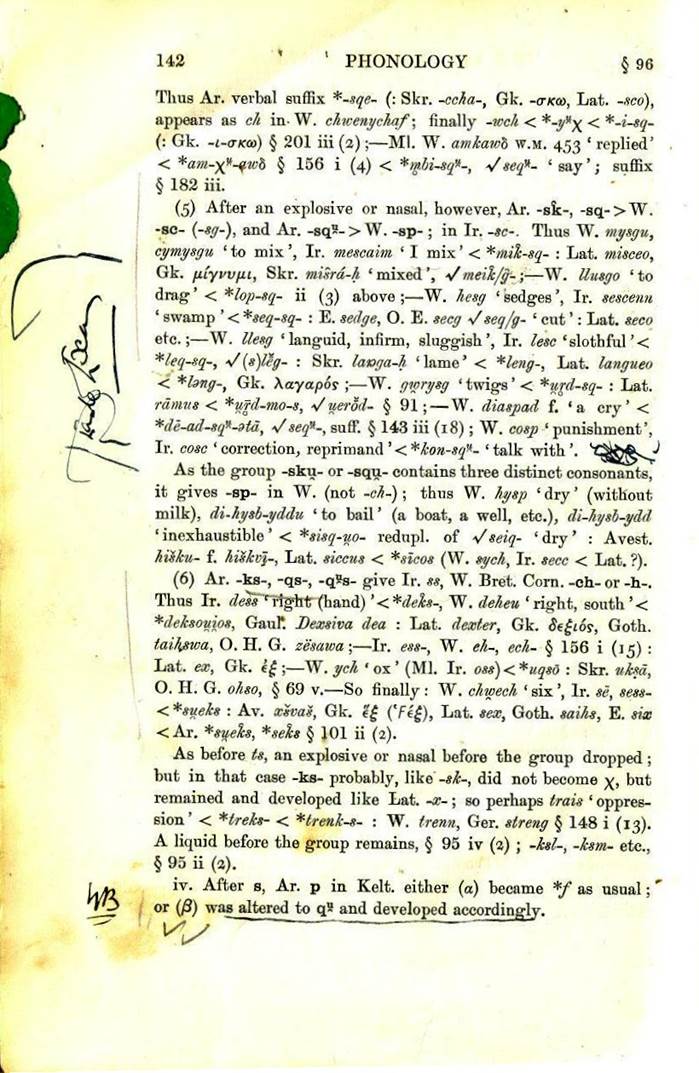 142 PHONOLOGY § 96
Thus Ar. verbal suffix *-sqe- (: Skr. -ccha-, Gk. -σκω, Lat. -sco),
appears as ch in W. chwenychaf; finally -wch < *-yᵘχ < *-i-sq-
(: Gk. -ι-σκω) § 201 iii (2);—Ml. W. amkawδ W.M. 453 ‘replied’
< *am-χᵘ̯-awδ § 156 i (4) < *m̥bi-sqᵘ̯-, √seqᵘ̯- ‘say’; suffix
§ 182 iii.
(5) After an explosive or nasal, however, Ar. -sk̑-, -sq- > W.
-sc- (-sg-), and Ar. -sqᵘ̯- > W. -sp-; in Ir. -sc-. Thus W. mysgu,
cymysgu ‘to mix’, Ir. mescaim ‘I mix’ < *mik̑-sq- : Lat. misceo,
Gk. μίγνυμι, Skr. miśrá-ḥ ‘mixed’, √meik̑/g̑-;—W. llusgo ‘to
drag’ < *lop-sq- ii (3) above;—W. hesg ‘sedges’, Ir. sescenn
‘swamp’ < *seq-sq- : E. sedge, O. E. secg √seq/g- ‘cut’ : Lat. seco
etc.;—W. llesg ‘languid, infirm, sluggish’, Ir. lesc ‘slothful’ <
*leq-sq-, √(s)lēg- : Skr. laṅga-ḥ ‘lame’ < *leng-, Lat. langueo
< *ləng-, Gk. λαγαρός;—W. gwrysg ‘twigs’ < *u̯r̥d-sq- : Lat.
rāmus < *u̯r̥̄d-mo-s, √u̯erōd- § 91;—W. diaspad f. ‘a cry’ <
*dē-ad-sqᵘ̯-ətā, √seqᵘ̯-, suff. § 143 iii (18); W. cosp ‘punishment’,
Ir. cosc ‘correction, reprimand’ < *kon-sqᵘ̯- ‘talk with’.
As the group -sku̯- or -squ̯- contains three distinct consonants,
it gives -sp- in W. (not -ch-); thus W. hysp ‘dry’ (without
milk), di-hysb-yddu ‘to bail’ (a boat, a well, etc.), di-hysb-ydd
‘inexhaustible’ < *sisq-u̯o- redupl. of √seiq- ‘dry’ : Avest.
hišku- f. hiškvī-, Lat. siccus < *sĭcos (W. sych, Ir. secc < Lat.?).
(6) Ar. -ks-, -qs-, -qᵘ̯s- give Ir. ss, W. Bret. Corn. -ch- or -h-.
Thus Ir. dess ‘right (hand)’ < *deks-, W. deheu ‘right, south’ <
*deksou̯i̯os, Gaul. Dexsiva dea : Lat. dexter, Gk. δεξιός, Goth.
taihswa, O. H. G. zësawa;—Ir. ess-, W. eh-, ech- § 156 i (15) :
Lat. ex, Gk. ἐξ;—W. ych ‘ox’ (Ml. Ir. oss) < *uqsō : Skr. ukṣā,
O. H. G. ohso, § 69 v.—So finally : W. chwech ‘six’, Ir. sē, sess-
< *su̯eks : Av. xšvaš, Gk. ἕξ (Ϝέξ), Lat. sex, Goth. saihs, E. six
< Ar. *su̯ek̑s, *sek̑s § 101 ii (2).
As before ts, an explosive or nasal before the group dropped;
but in that case -ks- probably, like -sk-, did not become χ, but
remained and developed like Lat. -x-; so perhaps trais ‘oppres-
sion’ < *treks- < *trenk-s- : W. trenn, Ger. streng § 148 i (13).
A liquid before the group remains, § 95 iv (2); -ksl-, -ksm- etc.,
§ 95 ii (2).
iv. After s, Ar. p in Kelt. either (α) became *f as usual;
or (β) was altered to qᵘ̯ and developed accordingly.
NB